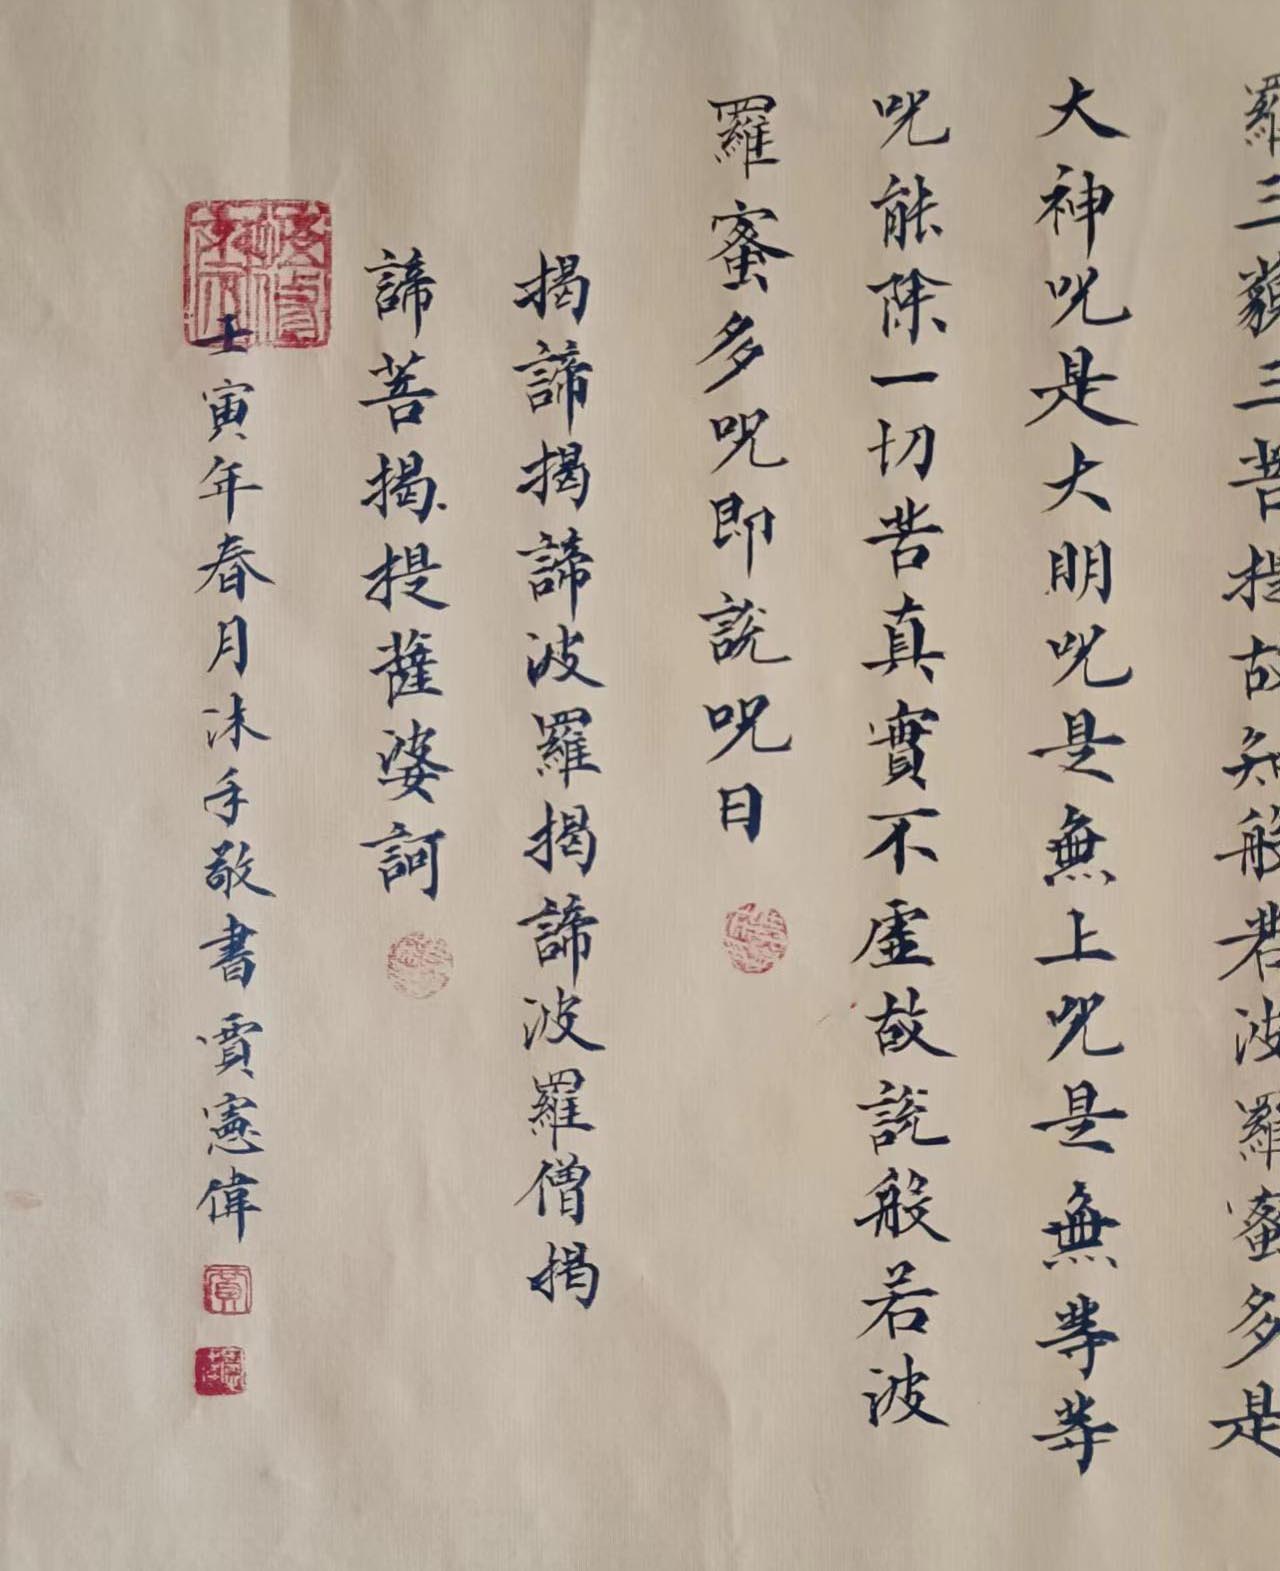 羅三藐三菩提故知般若波羅蜜多是
大神呪是大明呪是無上呪是無等等
呪能除一切苦真實不虛故説般若波
羅蜜多呪即説呪曰
揭諦揭諦波羅揭諦波羅僧揭
諦菩揭提薩婆訶
壬寅年春月沐手敬書 賈憲偉
賈